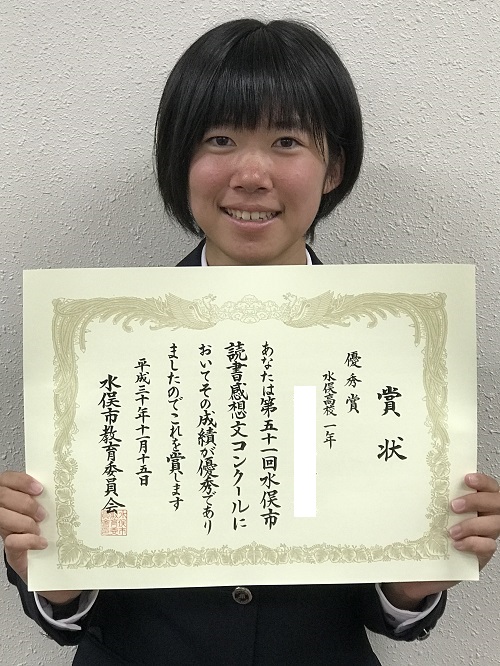 賞状
優秀賞
水俣高校 一年
あなたは第五十一回水俣市
読書感想文コンクールに
おいてその成績が優秀であり
ましたのでこれを賞します
平成三十年十一月十五日
水俣市教育委員会